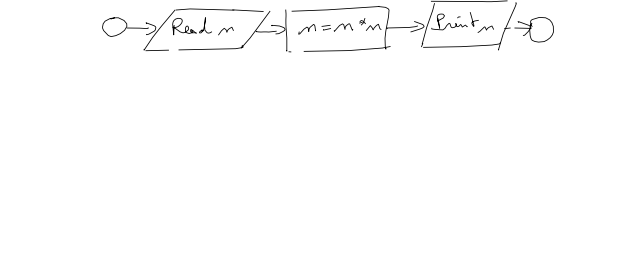 Read n n = n * n Print n